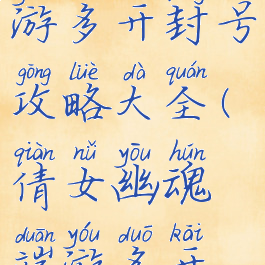 游多开封号
gōng lüè dà quán
攻略大全(
qiàn nǚ yōu hún
倩女幽魂
duān yóu duō kāi
端游多开